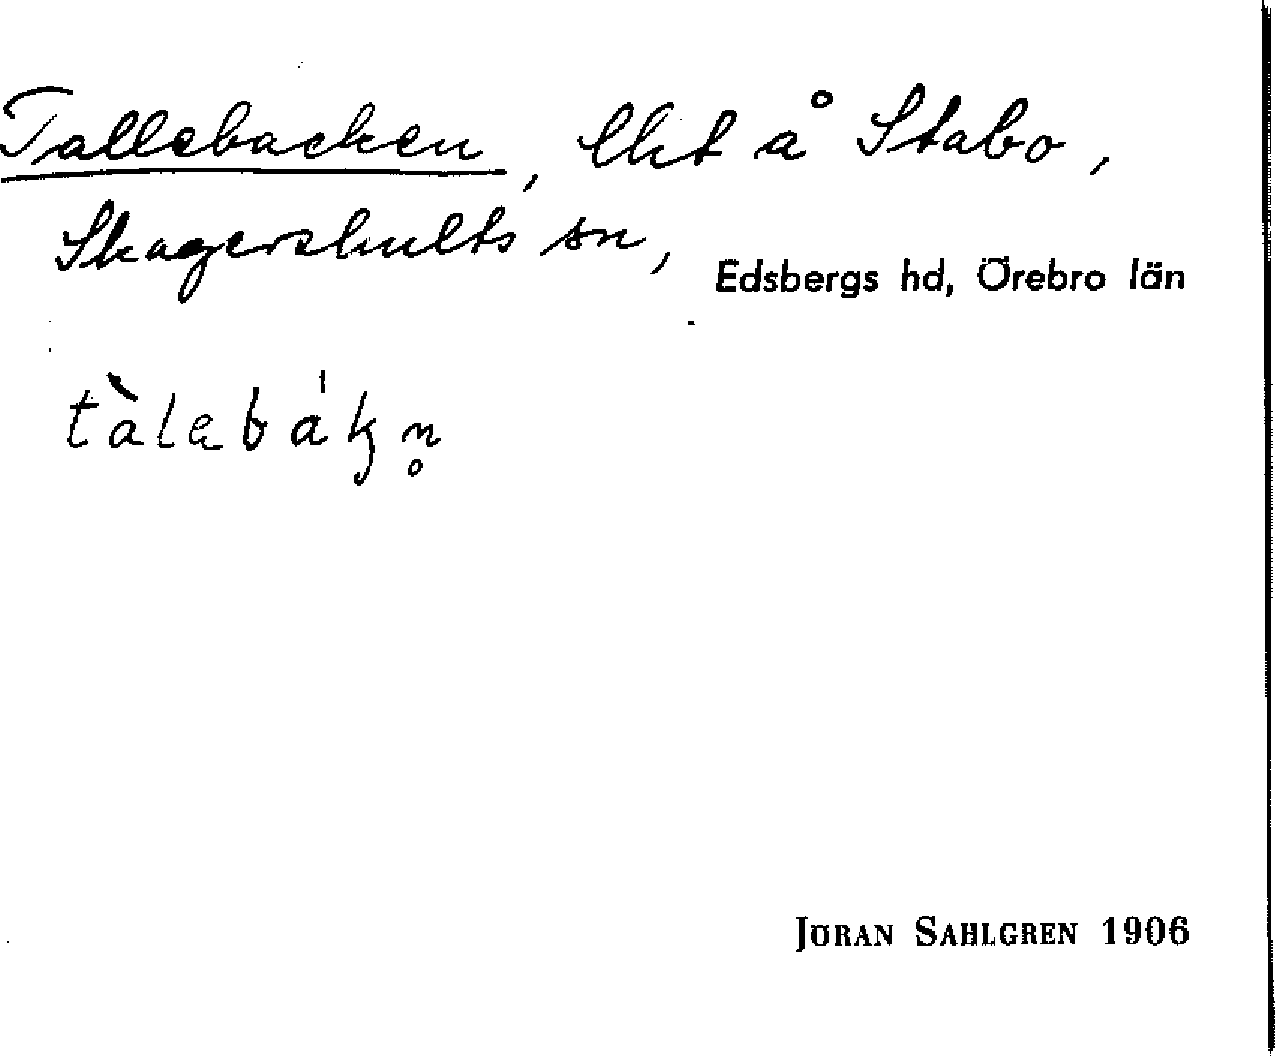 Tallebacken, lht å Stabo,
Skagershults sn, Edsbergs hd, Örebro län
tàlebákn̥
JÖRAN SAHLGREN 1906